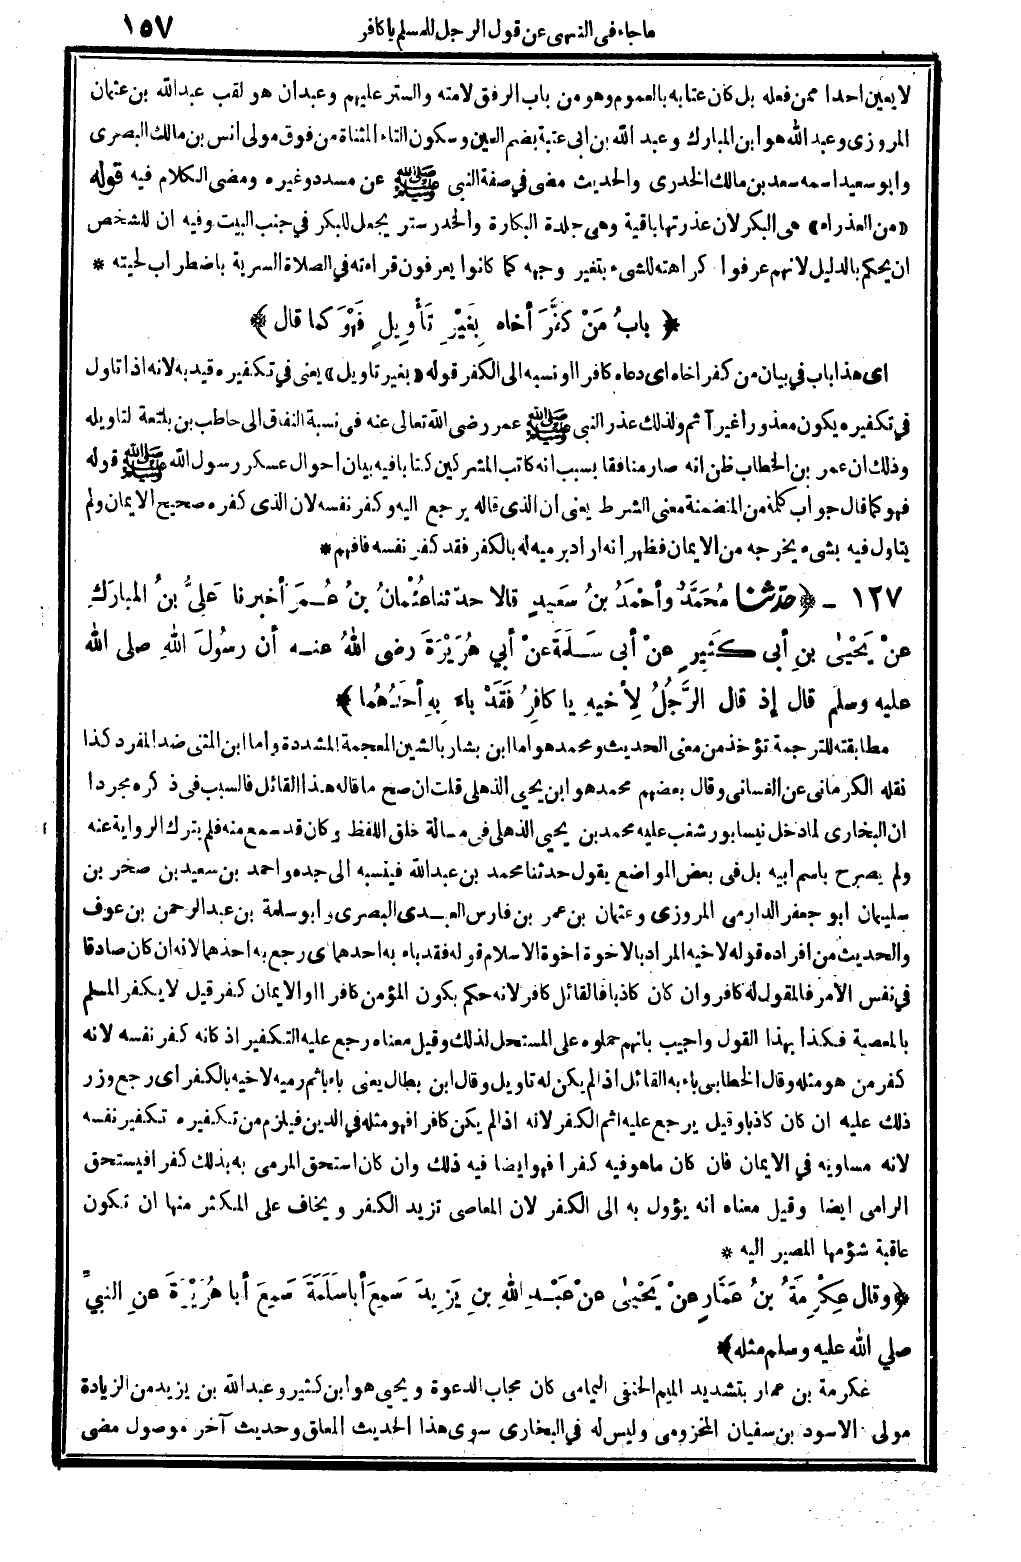 ما جاء فى النهى عن قول الرجل للمسلم يا كافر ١٥٧
لا يعين احدا ممن فعله بل كان عتابه بالعموم وهو من باب الرفق لامته والستر عليهم وعبدان هو لقب عبد الله بن عثمان
المروزى وعبد الله هو ابن المبارك وعبد الله بن ابى عتبة بضم العين وسكون التاء المثناة من فوق مولى انس بن مالك البصرى
وابو سعيد اسمه سعد بن مالك الخدرى والحديث مضى في صفة النبى ﷺ عن مسدد وغيره ومضى الكلام فيه قوله
«من العذراء» هى البكر لان عذرتها باقية وهى جلدة البكارة والخدر ستر يجعل للبكر في جنب البيت وفيه ان للشخص
ان يحكم بالدليل لانهم عرفوا كراهته للشىء بتغير وجهه كما كانوا يعرفون قراءته في الصلاة السرية باضطراب لحيته *
﴿ بابُ مَنْ كَفَّرَ أخاه بِغَيْرِ تَأْوِيلٍ فَهْوَ كما قال ﴾
اى هذا باب في بيان من كفر اخاه اى دعاه كافرا او نسبه الى الكفر قوله «بغير تاويل» يعنى في تكفيره قيد به لانه اذا تاول
في تكفيره يكون معذورا غير آثم ولذلك عذر النبى ﷺ عمر رضى الله تعالى عنه فى نسبة النفاق الى حاطب بن بلتعة لتاويله
وذلك ان عمر بن الخطاب ظن انه صار منافقا بسبب انه كاتب المشركين كتابا فيه بيان احوال عسكر رسول الله ﷺ قوله
فهو كما قال جواب كلمة من المتضمنة معنى الشرط يعنى ان الذى قاله يرجع اليه وكفر نفسه لان الذى كفره صحيح الايمان ولم
يتاول فيه بشىء يخرجه من الايمان فظهر انه اراد برميه له بالكفر فقد كفر نفسه فافهم *
١٢٧ - ﴿ حدّثنا مُحَمَّدٌ وأحْمَدُ بنُ سَعِيدٍ قالا حدّثنا عُثْمانُ بنُ عُمَرَ أخبرنا عَلِىُّ بنُ المُبارَكِ
عنْ يَحْيَىٰ بنِ أبى كَثِيرٍ عنْ أبى سَلَمَةَ عنْ أبي هُرَيْرَةَ رضى اللهُ عنه أن رسُولَ اللهِ صلى الله
عليه وسلم قال إذ قال الرَّجُلُ لِأخيهِ يا كافِرُ فَقَدْ باءَ بِهِ أحَدُهُما ﴾
مطابقته للترجمة تؤخذ من معنى الحديث ومحمد هو اما ابن بشار بالشين المعجمة المشددة واما ابن المثنى ضد المفرد كذا
نقله الكرمانى عن الغسانى وقال بعضهم محمد هو ابن يحيى الذهلى قلت ان صح ما قاله هذا القائل فالسبب فى ذكره مجردا
ان البخارى لما دخل نيسابور شغب عليه محمد بن يحيى الذهلى فى مسالة خلق اللفظ وكان قد سمع منه فلم يترك الرواية عنه
ولم يصرح باسم أبيه بل فى بعض المواضع يقول حدثنا محمد بن عبد الله فينسبه الى جده واحمد بن سعيد بن صخر بن
سليمان ابو جعفر الدارمى المروزى وعثمان بن عمر بن فارس العبدى البصرى وابو سلمة بن عبد الرحمن بن عوف
والحديث من افراده قوله لاخيه المراد بالاخوة اخوة الاسلام قوله فقد باء به احدهما اى رجع به احدهما لانه ان كان صادقا
في نفس الأمر فالمقول له كافر وان كان كاذبا فالقائل كافر لانه حكم بكون المؤمن كافرا او الايمان كفر قيل لا يكفر المسلم
بالمعصية فكذا بهذا القول واجيب بانهم حملوه على المستحل لذلك وقيل معناه رجع عليه التكفير اذ كانه كفر نفسه لانه
كفر من هو مثله وقال الخطابى باء به القائل اذا لم يكن له تاويل وقال ابن بطال يعنى باء باثم رميه لاخيه بالكفر أى رجع وزر
ذلك عليه ان كان كاذبا وقيل يرجع عليه اثم الكفر لانه اذا لم يكن كافرا فهو مثله في الدين فيلزم من تكفيره تكفير نفسه
لانه مساويه في الايمان فان كان ما هو فيه كفرا فهو ايضا فيه ذلك وان كان استحق المرمى به بذلك كفرا فيستحق
الرامى ايضا وقيل معناه انه يؤول به الى الكفر لان المعاصى تزيد الكفر ويخاف على المكثر منها ان تكون
عاقبة شؤمها المصير اليه *
﴿ وقال عِكْرِمَةُ بنُ عَمَّارٍ عنْ يَحْيَىٰ عنْ عَبْدِ اللهِ بنِ يَزِيدَ سَمِعَ أبا سَلَمَةَ سَمِعَ أبا هُرَيْرَةَ عنِ النبيِّ
صلي الله عليه وسلم مثله ﴾
عكرمة بن عمار بتشديد الميم الحنفى اليمامى كان مجاب الدعوة ويحيى هو ابن كثير وعبد الله بن يزيد من الزيادة
مولى الاسود بن سفيان المخزومى وليس له في البخارى سوى هذا الحديث المعلق وحديث آخر موصول مضى